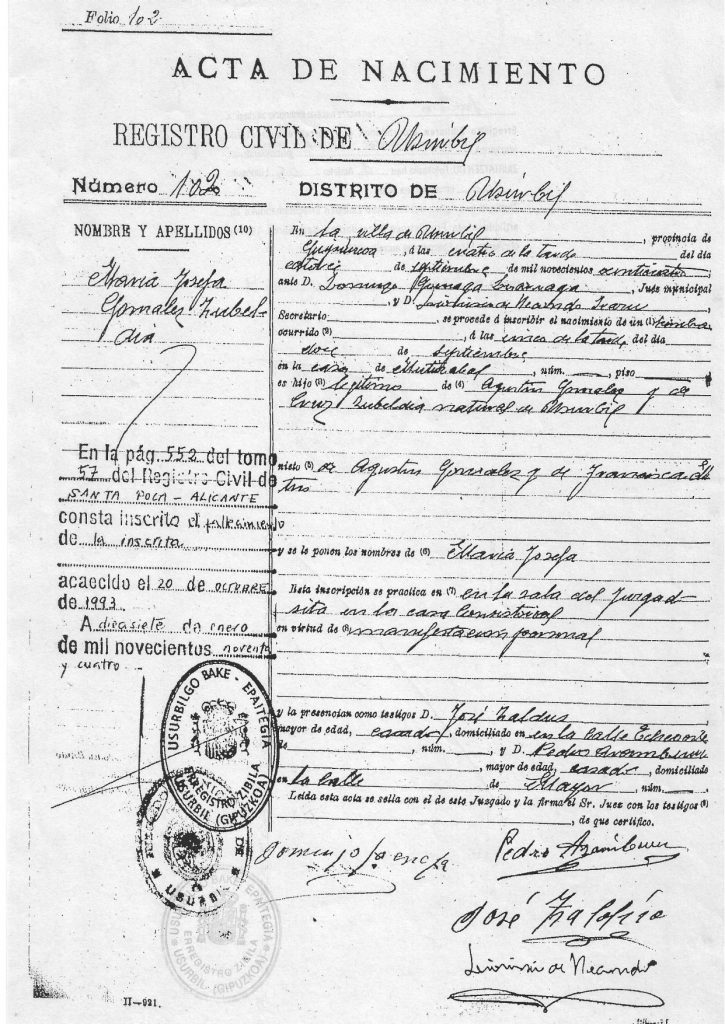 Folio 102
ACTA DE NACIMIENTO
REGISTRO CIVIL DE Usurbil
Número 102
DISTRITO DE Usurbil
NOMBRE Y APELLIDOS (10)
Maria Josefa
Gonzalez Zubel-
dia
En la pág. 552 del tomo
57 del Registro Civil de
SANTA POLA - ALICANTE
consta inscrito el fallecimiento
de la inscrita
acaecido el 20 de OCTUBRE
de 1993
A diecisiete de enero
de mil novecientos noventa
y cuatro
En la villa de Usurbil, provincia de
Guipuzcoa, á las cuatro de la tarde del día
catorce de septiembre, de mil novecientos
ante D. Domingo, Juez municipal
, y D.
Secretario, se procede á inscribir el nacimiento de un (1) hembra
ocurrido (2) á las cinco de la tarde del día
doce de septiembre
en la casa de, núm. , piso
es hijo (3) legítimo de (4) Agustin Gonzalez y de
Cruz Zubeldia natural de Usurbil
nieto (5) de Agustin Gonzalez y de Francisca
y se le ponen los nombres de (6) Maria Josefa
Esta inscripción se practica en (7) en la sala del Juzgado
sita en la casa Consistorial
en virtud de (8) manifestacion personal
y la presencian como testigos D. José Zaldua
mayor de edad, casado, domiciliado en la calle
de , núm. , y D. Pedro Aramburu
, mayor de edad, casado, domiciliado
en la calle de Mayor núm.
Leída esta acta se sella con el de este Juzgado y la firma el Sr. Juez con los testigos (9)
, de que certifico.
USURBILGO BAKE - EPAITEGIA
ERREGISTRO ZIBILA
USURBIL (GIPUZKOA)
DE
USURBIL
EPAITEGIA
ERREGISTRO ZIBILA
USURBIL (GIPUZKOA)
Pedro Aramburu
José Zaldúa
II—931.